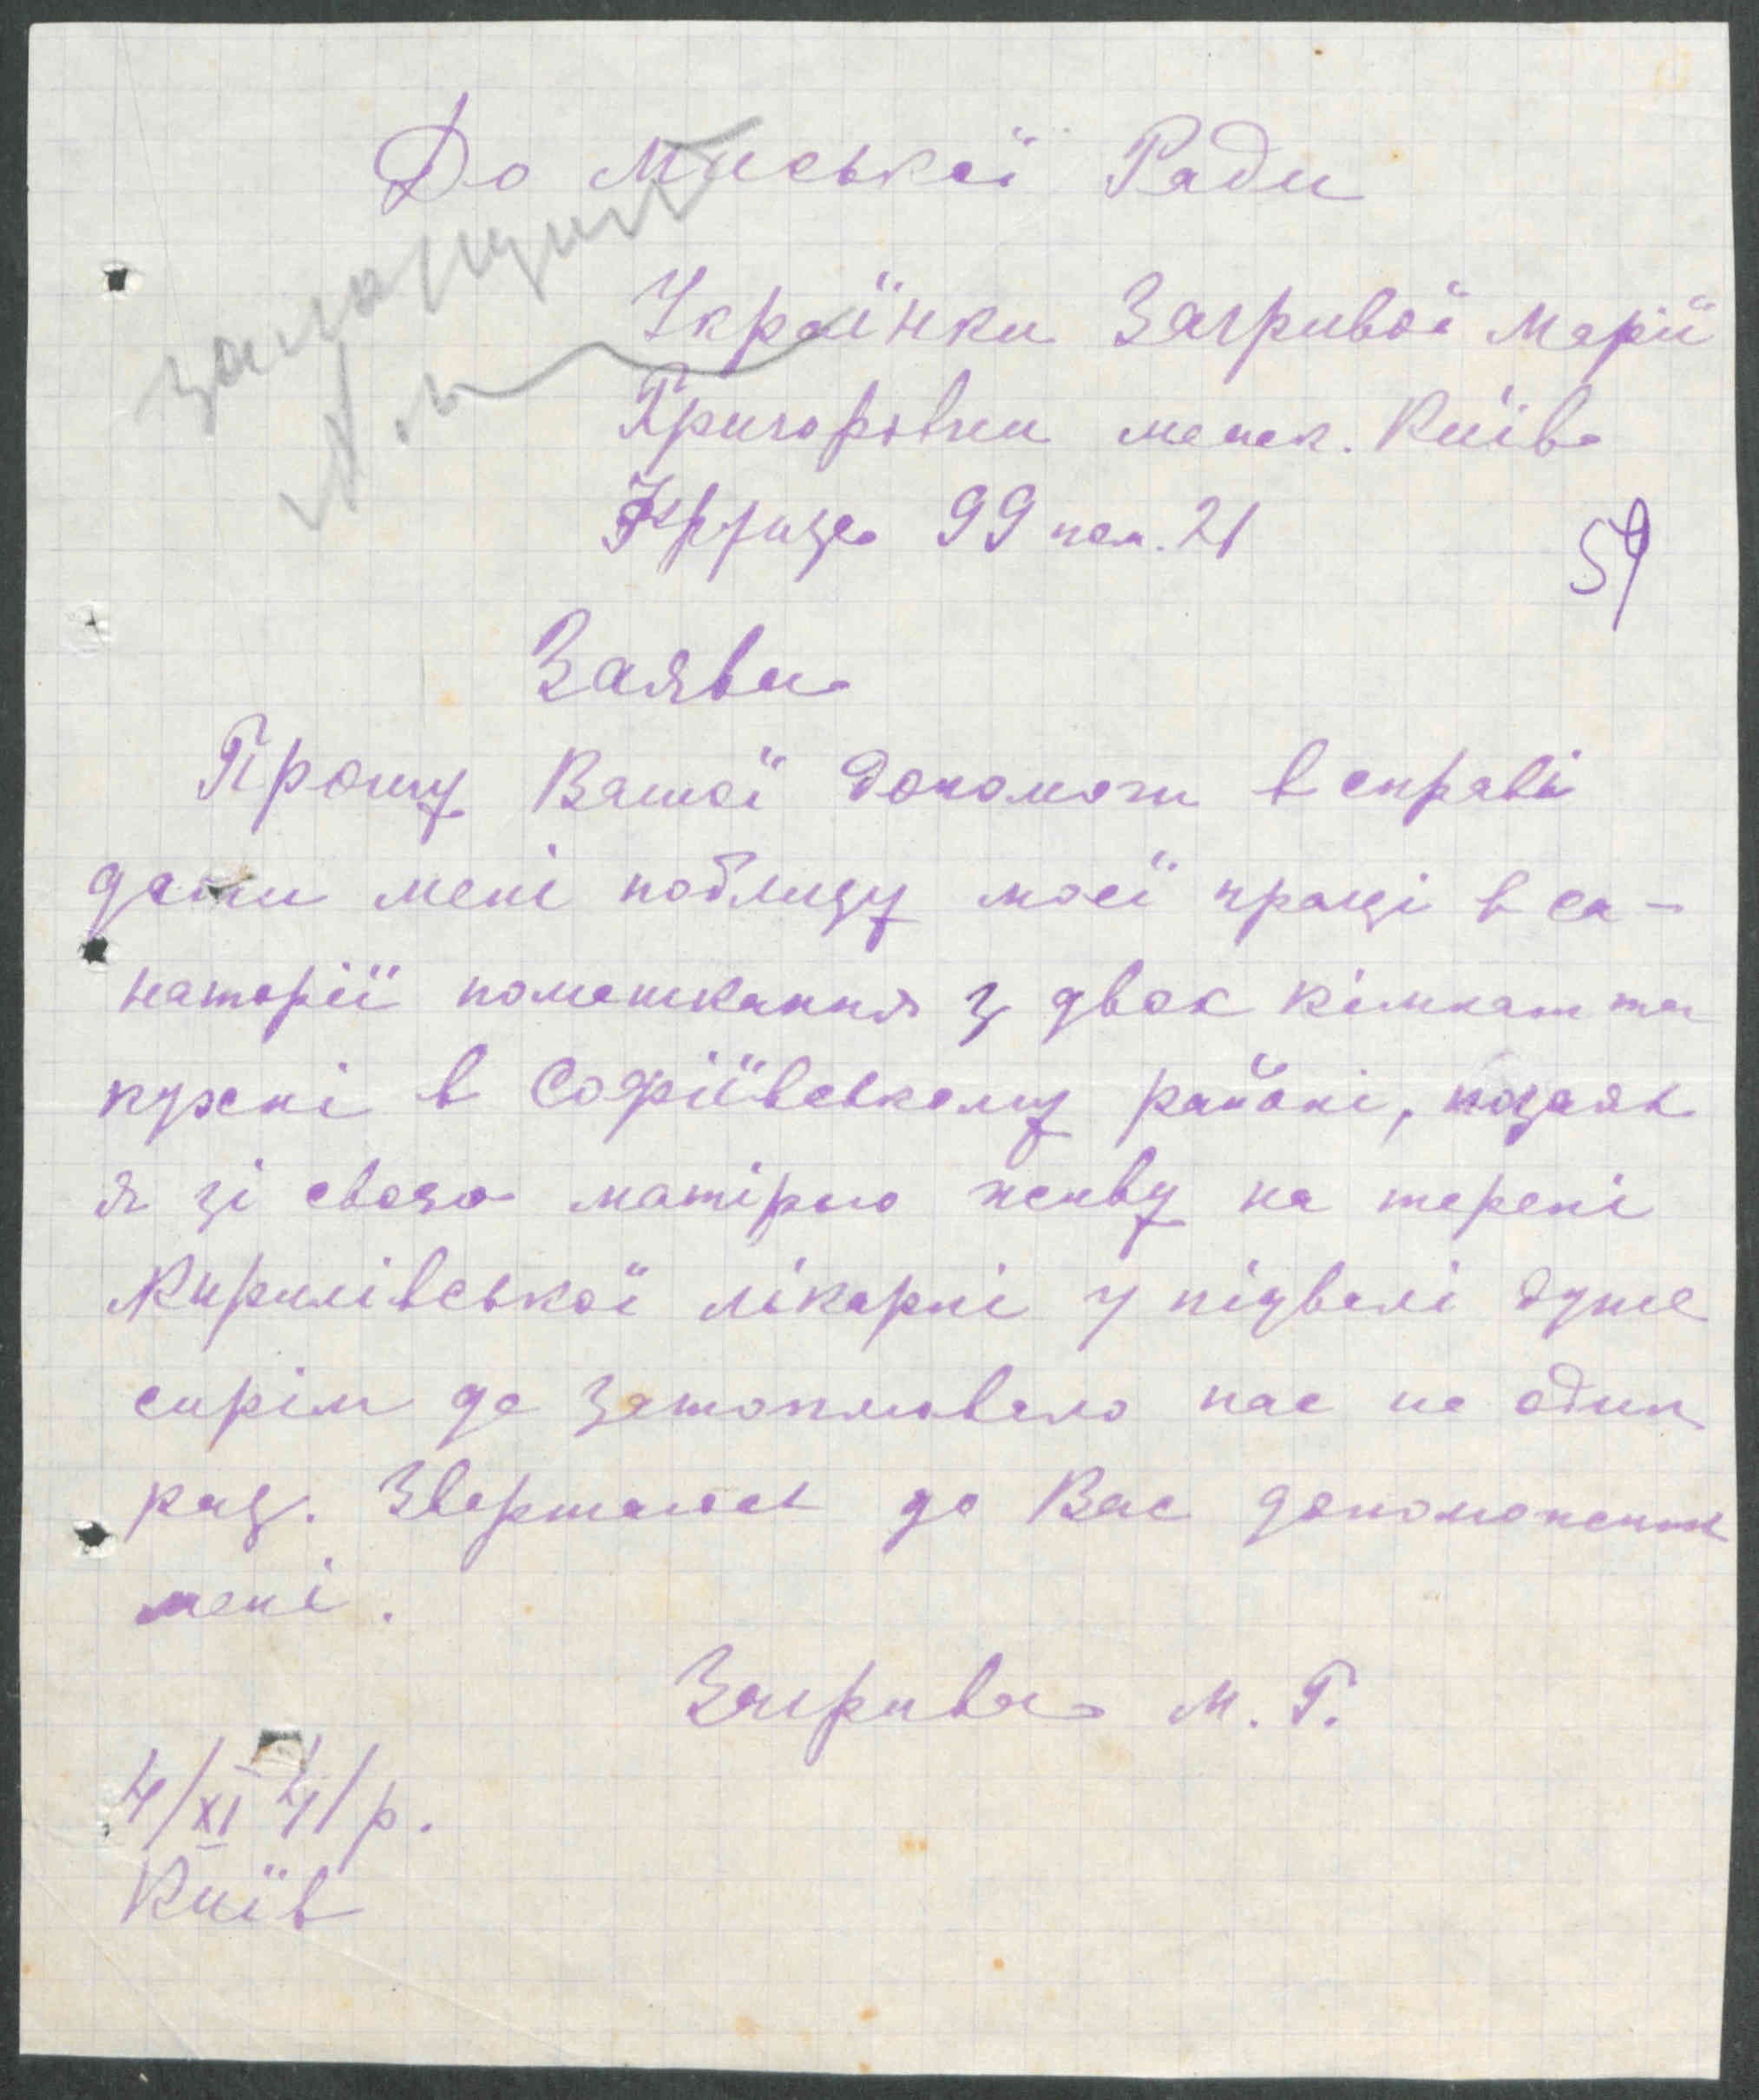 До Міської Ради
Українки Загривої Марії
Григоровни мешк. Київ
Фрунзе 99 пом. 21
59
Заява
Прошу Вашої допомоги в справі
дати мені поблизу моєї праці в са-
наторії помешкання з двох кімнат та
кухні в Софіївському районі, позаяк
я зі своєю матірью живу на терені
Кирилівської лікарні у підвалі дуже
сирім де затоплювало нас не один
раз. Звертаюсь до Вас допоможить
мені.
Загрива М. Г.
4/XI 41 р.
Київ